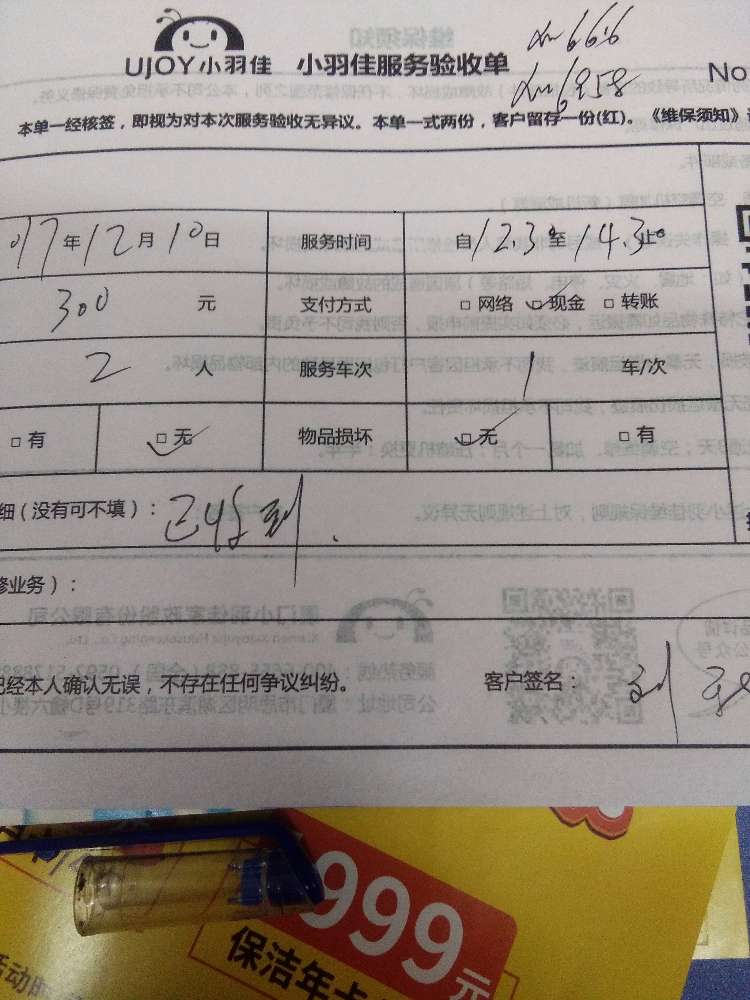 UJOY小羽佳 小羽佳服务验收单
No
本单一经核签，即视为对本次服务验收无异议。本单一式两份，客户留存一份(红)。《维保须知》
017年12月10日 服务时间 自12.30至14.30止
300 元 支付方式 □网络 □现金 □转账
2 人 服务车次 1 车/次
□有 □无 物品损坏 □无 □有
细（没有可不填）： 已收到.
修业务）：
已经本人确认无误，不存在任何争议纠纷。 客户签名： 刘
999元
保洁年卡
活动时